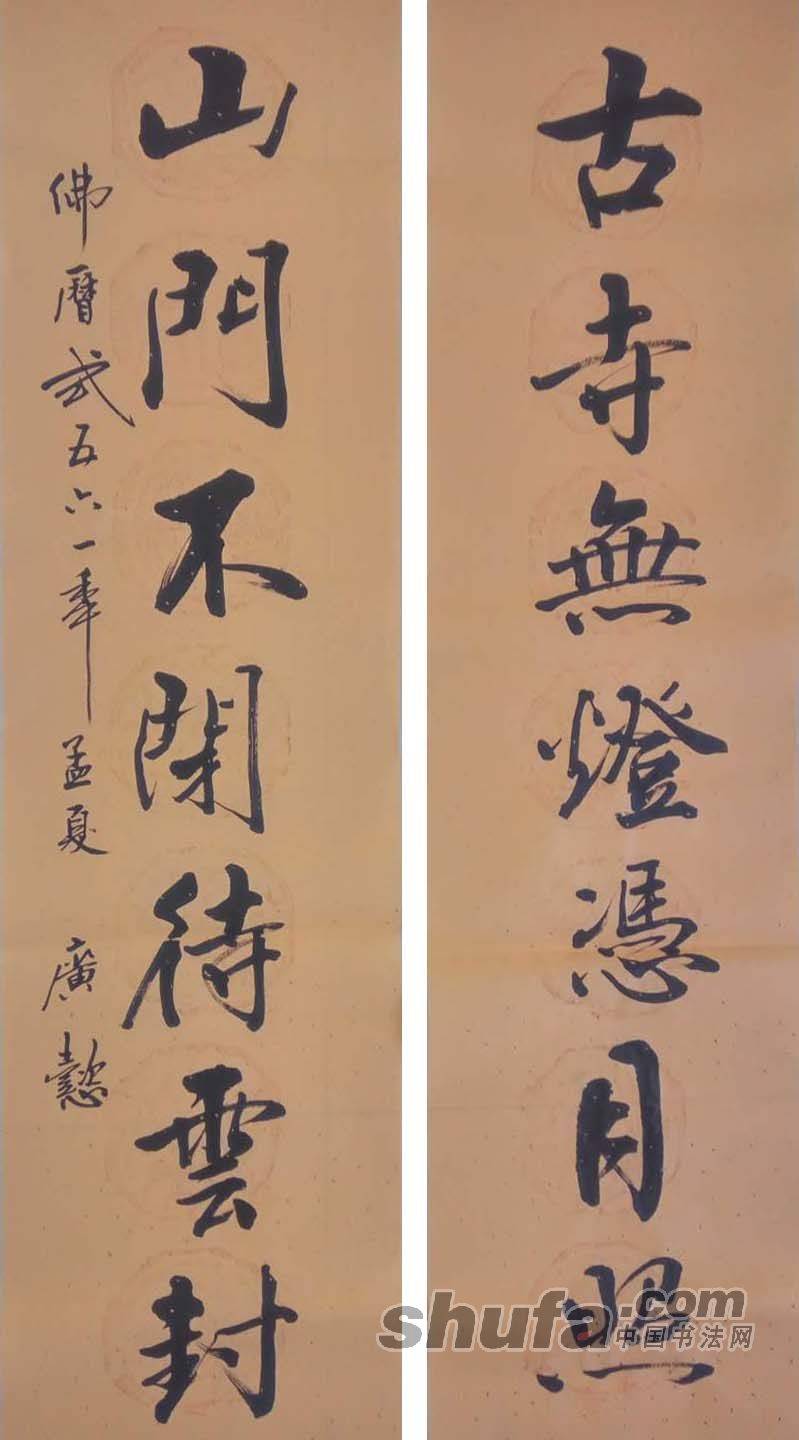 古寺無燈憑月照
山門不閉待雲封
佛曆貳五六一年孟夏 廣懿
shufa.com
中国书法网